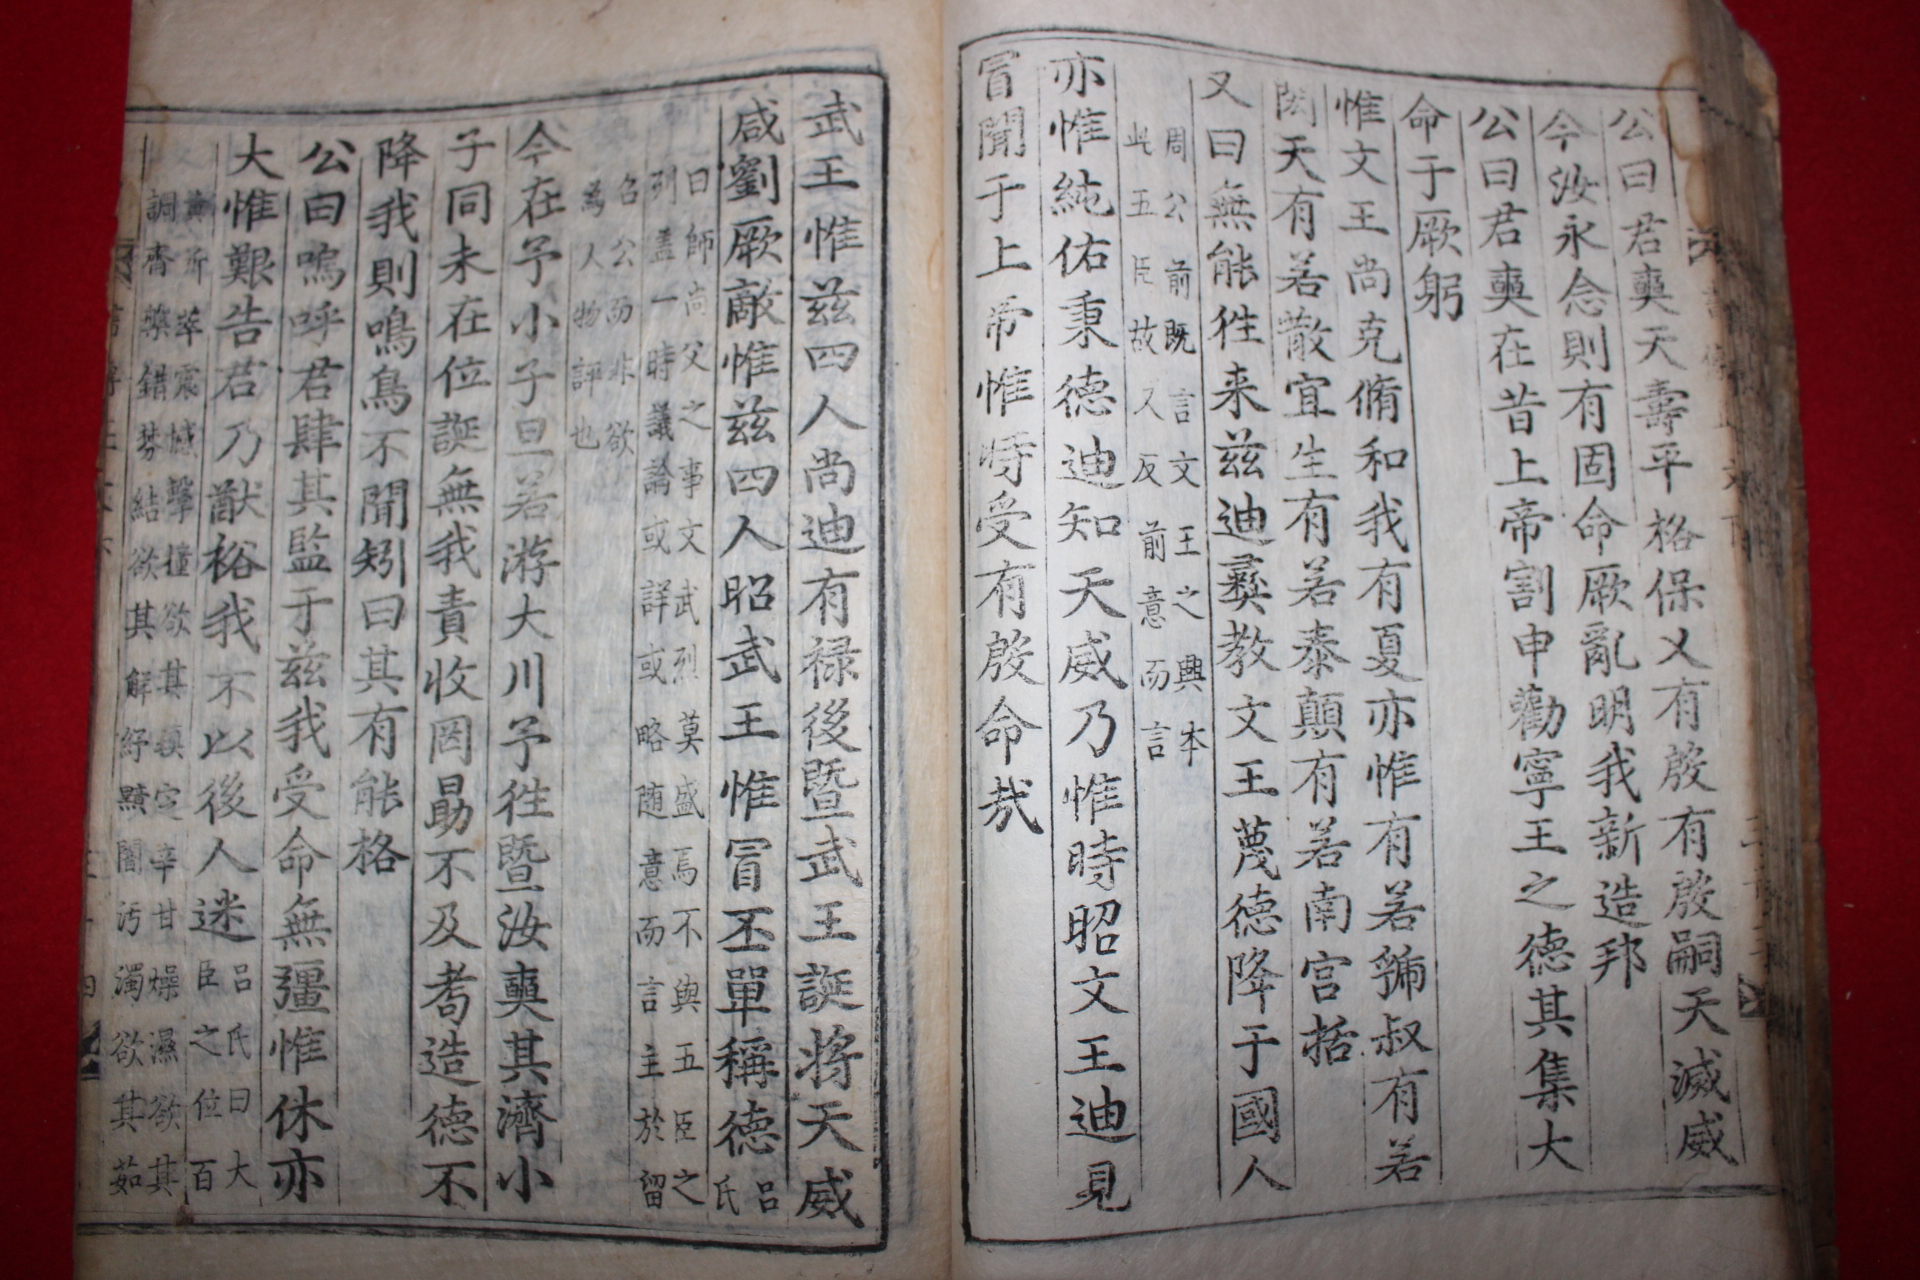 公曰君奭天壽平格保乂有殷有殷嗣天滅威
今汝永念則有固命厥亂明我新造邦
公曰君奭在昔上帝割申勸寧王之德其集大
命于厥躬
惟文王尚克脩和我有夏亦惟有若虢叔有若
閎夭有若散宜生有若泰顚有若南宮括
又曰無能徃来茲迪彝教文王蔑德降于國人
周公前既言文王之興本
此五臣故又反前意而言
亦惟純佑秉德迪知天威乃惟時昭文王迪見
冒聞于上帝惟時受有殷命哉
武王惟茲四人尚迪有禄後暨武王誕將天威
咸劉厥敵惟茲四人昭武王惟冒丕單稱德
呂
氏
曰師尚父之事文武烈莫盛焉不與五臣之
列盖一時議論或詳或略随意而言主於留
召公而非欲
為人物評也
今在予小子旦若游大川予徃暨汝奭其濟小
子同未在位誕無我責收罔勗不及耇造德不
降我則鳴鳥不聞矧曰其有能格
公曰嗚呼君肆其監于茲我受命無疆惟休亦
大惟艱告君乃猷裕我不以後人迷
呂氏曰大
臣之位百
責所萃震撼擊撞欲其鎮定辛甘燥濕欲其
調齊槃錯棼結欲其解紓黯闇汚濁欲其茹